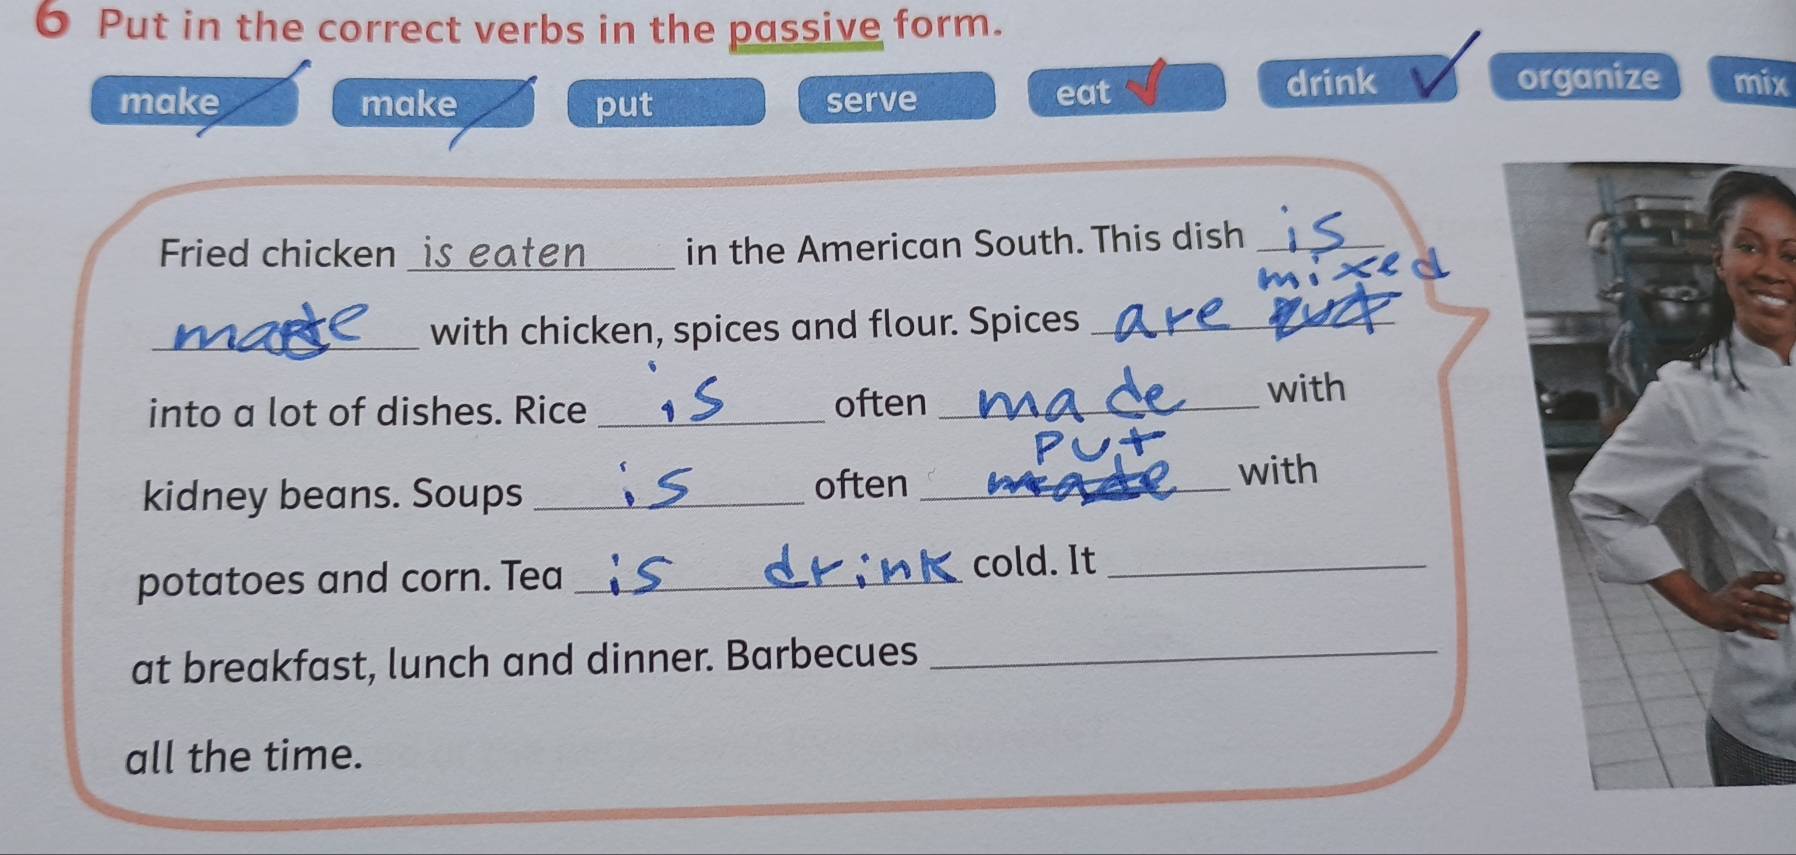 6 Put in the correct verbs in the passive form.
make make put serve eat drink organize mix
Fried chicken is eaten in the American South. This dish is
mixed
made with chicken, spices and flour. Spices are put
into a lot of dishes. Rice is often made with
put
kidney beans. Soups is often made with
potatoes and corn. Tea is drink cold. It
at breakfast, lunch and dinner. Barbecues
all the time.